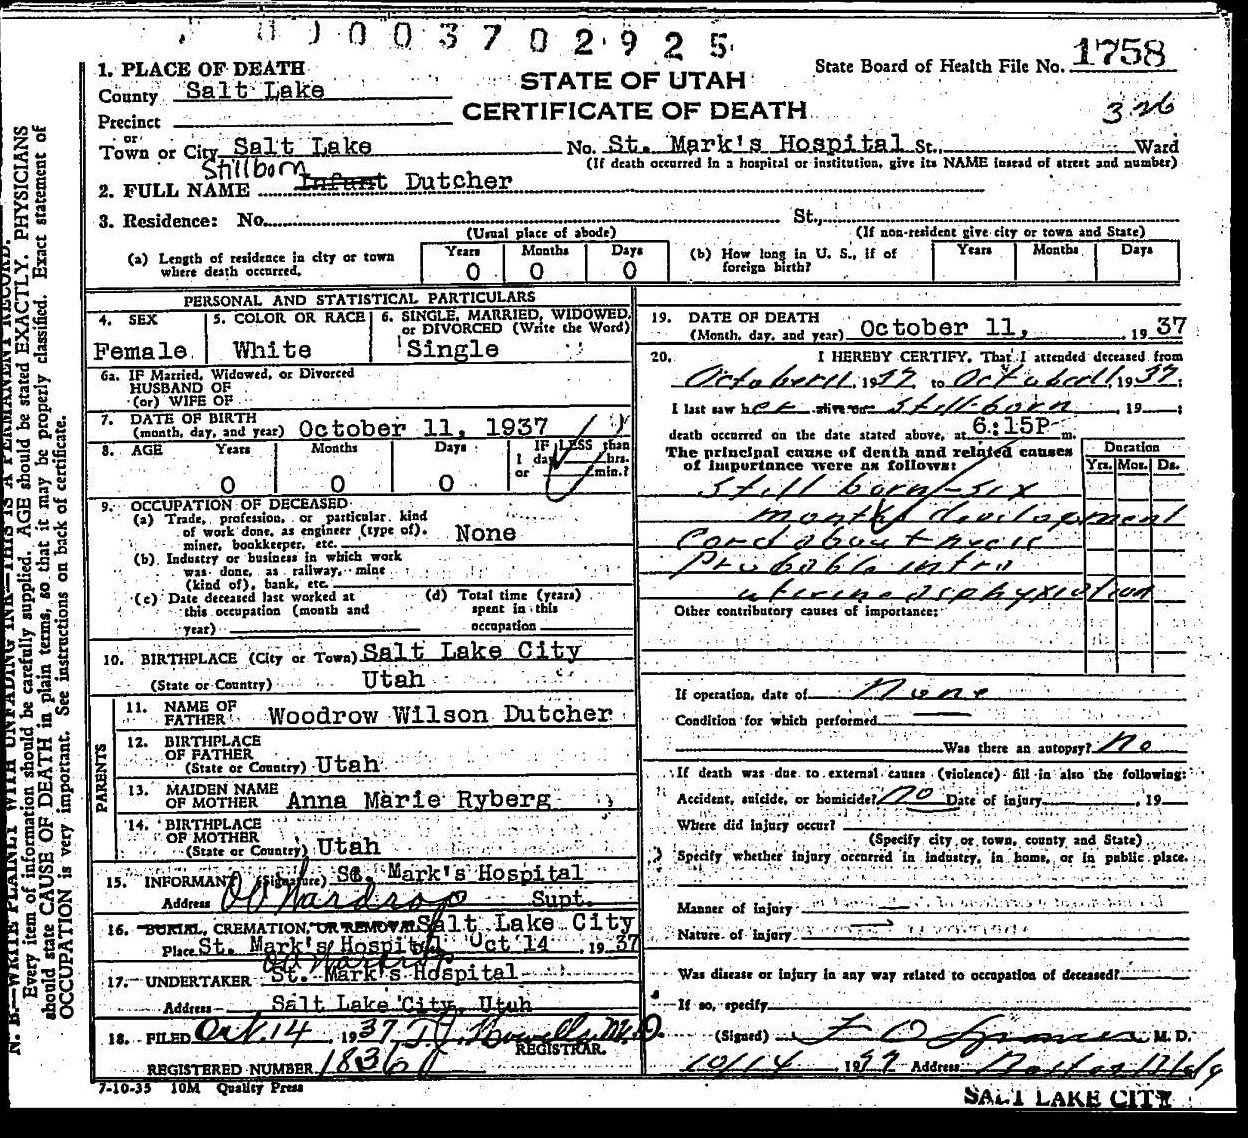 0 0 0 3 7 0 2 9 2 5
State Board of Health File No. 1758
326
STATE OF UTAH
CERTIFICATE OF DEATH
1. PLACE OF DEATH
County Salt Lake
Precinct
or
Town or City Salt Lake No. St. Mark's Hospital St., Ward
(If death occurred in a hospital or institution, give its NAME insead of street and number)
Stillborn
2. FULL NAME Infant Dutcher
3. Residence: No. St.,
(Usual place of abode) (If non-resident give city or town and State)
(a) Length of residence in city or town where death occurred. Years 0 Months 0 Days 0
(b) How long in U. S., if of foreign birth? Years Months Days
PERSONAL AND STATISTICAL PARTICULARS
4. SEX Female
5. COLOR OR RACE White
6. SINGLE, MARRIED, WIDOWED, or DIVORCED (Write the Word) Single
6a. IF Married, Widowed, or Divorced
HUSBAND OF
(or) WIFE OF
7. DATE OF BIRTH
(month, day, and year) October 11, 1937
8. AGE Years 0 Months 0 Days 0 IF LESS than 1 day hrs. or min.?
9. OCCUPATION OF DECEASED
(a) Trade, profession, or particular kind
of work done, as engineer (type of),
miner, bookkeeper, etc. None
(b) Industry or business in which work
was done, as railway, mine
(kind of), bank, etc.
(c) Date deceased last worked at
this occupation (month and
year)
(d) Total time (years)
spent in this
occupation
10. BIRTHPLACE (City or Town) Salt Lake City
(State or Country) Utah
PARENTS
11. NAME OF
FATHER Woodrow Wilson Dutcher
12. BIRTHPLACE
OF FATHER
(State or Country) Utah
13. MAIDEN NAME
OF MOTHER Anna Marie Ryberg
14. BIRTHPLACE
OF MOTHER
(State or Country) Utah
15. INFORMANT (Signature) St. Mark's Hospital
Address Wardrop Supt.
16. BURIAL, CREMATION, OR REMOVAL Salt Lake City
Place St. Mark's Hospital Oct 14 1937
Wardrop
17. UNDERTAKER St. Mark's Hospital
Address Salt Lake City, Utah
18. FILED Oct. 14, 1937 T.J. Howells M.D.
REGISTRAR.
REGISTERED NUMBER 1836
7-10-35 10M Quality Press
19. DATE OF DEATH
(Month, day, and year) October 11, 1937
20. I HEREBY CERTIFY, That I attended deceased from
October 11, 1937 to October 11, 1937;
I last saw her alive on stillborn, 19 ;
death occurred on the date stated above, at 6:15P m.
The principal cause of death and related causes
of importance were as follows:
Duration
Yrs. Mos. Ds.
Still born - six
months development
Cord about neck
Probable intra
uterine asphyxiation
Other contributory causes of importance:
If operation, date of None
Condition for which performed
Was there an autopsy? No
If death was due to external causes (violence) fill in also the following:
Accident, suicide, or homicide? no Date of injury , 19
Where did injury occur?
(Specify city or town, county and State)
Specify whether injury occurred in industry, in home, or in public place.
Manner of injury
Nature of injury
Was disease or injury in any way related to occupation of deceased?
If so, specify
(Signed) M. D.
10/14 19 Address
SALT LAKE CITY
N. B.—WRITE PLAINLY WITH UNFADING INK—THIS IS A PERMANENT RECORD.
Every item of information should be carefully supplied. AGE should be stated EXACTLY. PHYSICIANS
should state CAUSE OF DEATH in plain terms, so that it may be properly classified. Exact statement of
OCCUPATION is very important. See instructions on back of certificate.